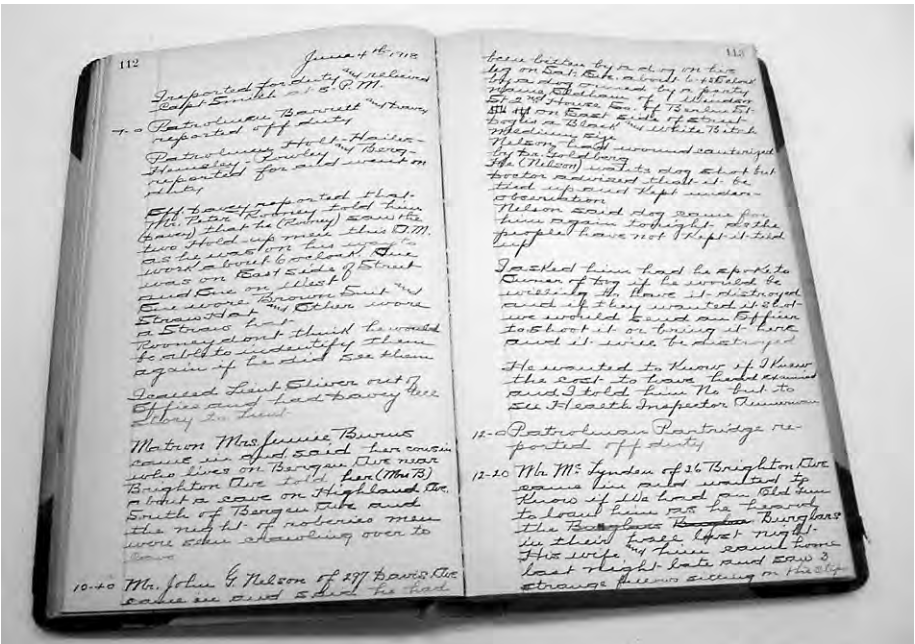 112
June 4th 1918
I reported for duty and relieved
Capt Smith at 5 P.M.
7-0 Patrolman Barrett and Davey
reported off duty
Patrolmen Holt-Hailes-
Hensley-Rowley and Berg-
reported for and went on
duty
Off Davey reported that
Mr. Peter Rooney told him
(Davey) that he (Roney) saw the
two Hold-up men this A.M.
as he was on his way to
work about 6 oclock. One
was on East side of Street
and One on West
One wore Brown Suit and
Straw Hat and Other wore
a Straw hat
Rooney dont think he would
be able to indentify them
again if he did see them
I called Lieut Oliver out of
Office and had Davey tell
Story to Lieut
Matron Mrs Jennie Burns
came in and said her cousin
who lives on Bergen Ave near
Brighton Ave told her (Mrs B)
about a cave on Highland Ave
South of Bergen Ave and
the night of roberies men
were seen crawling over to
cave
10-40 Mr. John G. Nelson of 297 Davis Ave
came in and said he had
113
been bitten by a dog on his
leg on Sat. Eve. about 6-45 oclock
by a dog owned by a party
name of Windsor
St 2nd House So. of Berlin St
on East side of street
Dog is a Black and White Bitch
Medium size
Nelson had wound cauterized
by Dr. Goldberg
He (Nelson) wants dog shot but
doctor advised that it be
tied up and Kept under-
observation
Nelson said dog came for
him again tonight. So the
people have not Kept it tied
up
I asked him had he spoke to
Owner of Dog if he would be
willing to have it distroyed
and if they wanted it shot
we would send an Officer
to shoot it or bring it here
and it will be distroyed
He wanted to Know if I Knew
the cost to have head examined
and I told him No but to
see Health Inspector
12-0 Patrolman Partridge re-
ported off duty
12-20 Mr Mc Lynden of 26 Brighton Ave
came in and wanted to
Know if We had an Old Gun
to loan him as he heard
the Burglars
in their hall last night
His wife and him came home
last night late and saw 3
strange fellows sitting on the steps